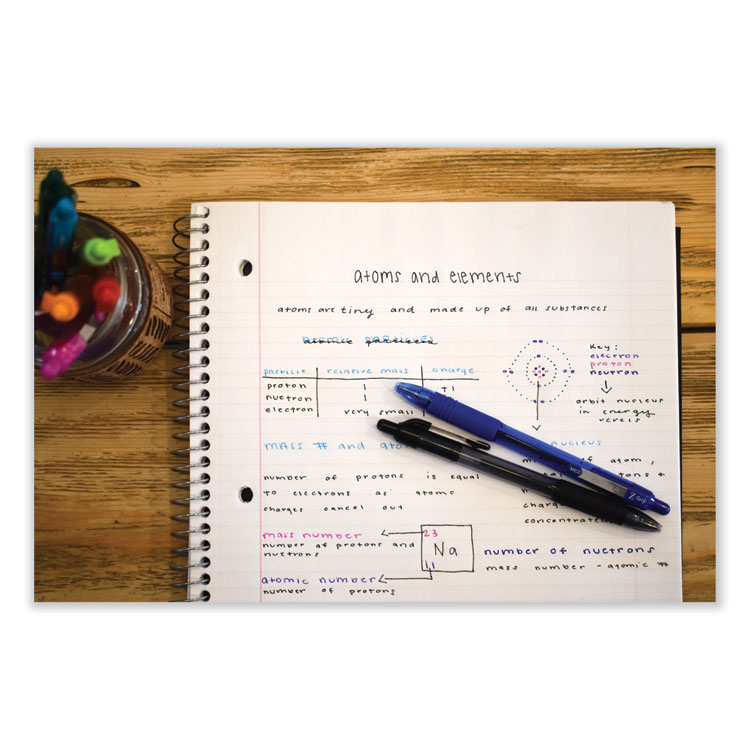 atoms and elements
atoms are tiny and made up of all substances
atomic particles
particle relative mass charge
proton 1 +1
nuetron 1
electron very small
Key:
electron
proton
neutron
orbit nucleus
in energy
MASS # and
nucleus
of atom,
number of protons is equal
to electrons as atoms
charges cancel out
mass number
number of protons and
nuetrons
23
Na
11
atomic number
number of protons
number of nuetrons
mass number - atomic #
MED
Z Grip